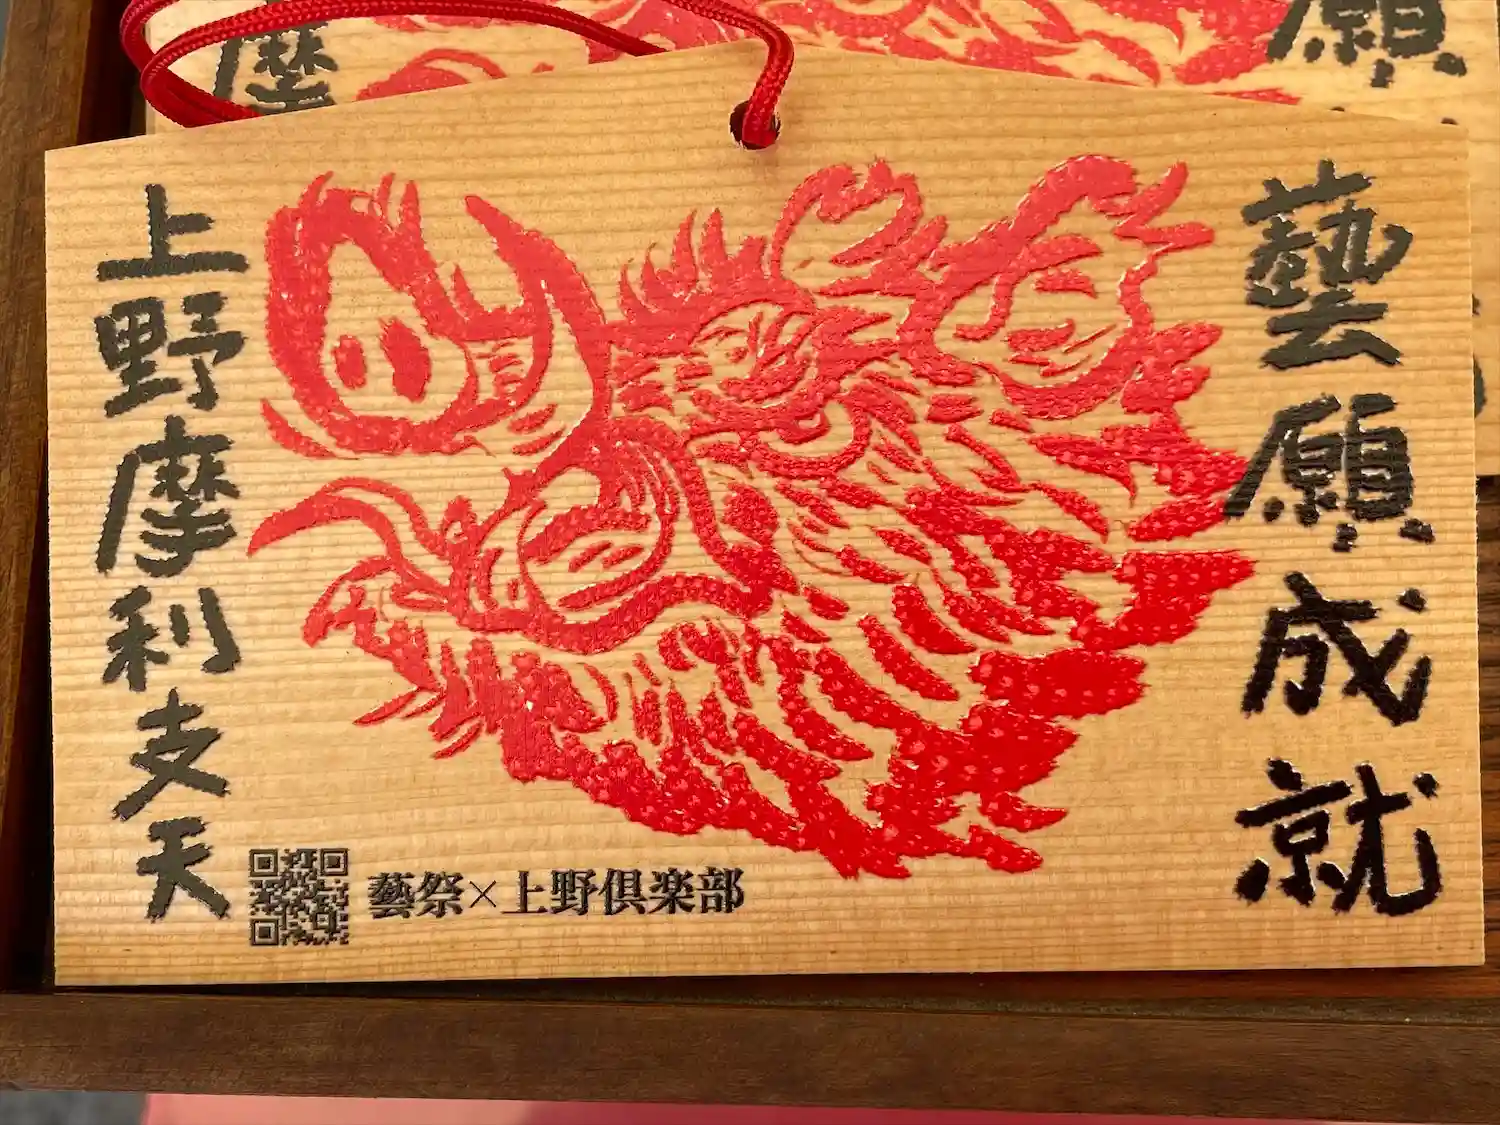 藝願成就
上野摩利支天
藝祭×上野倶楽部
摩
願